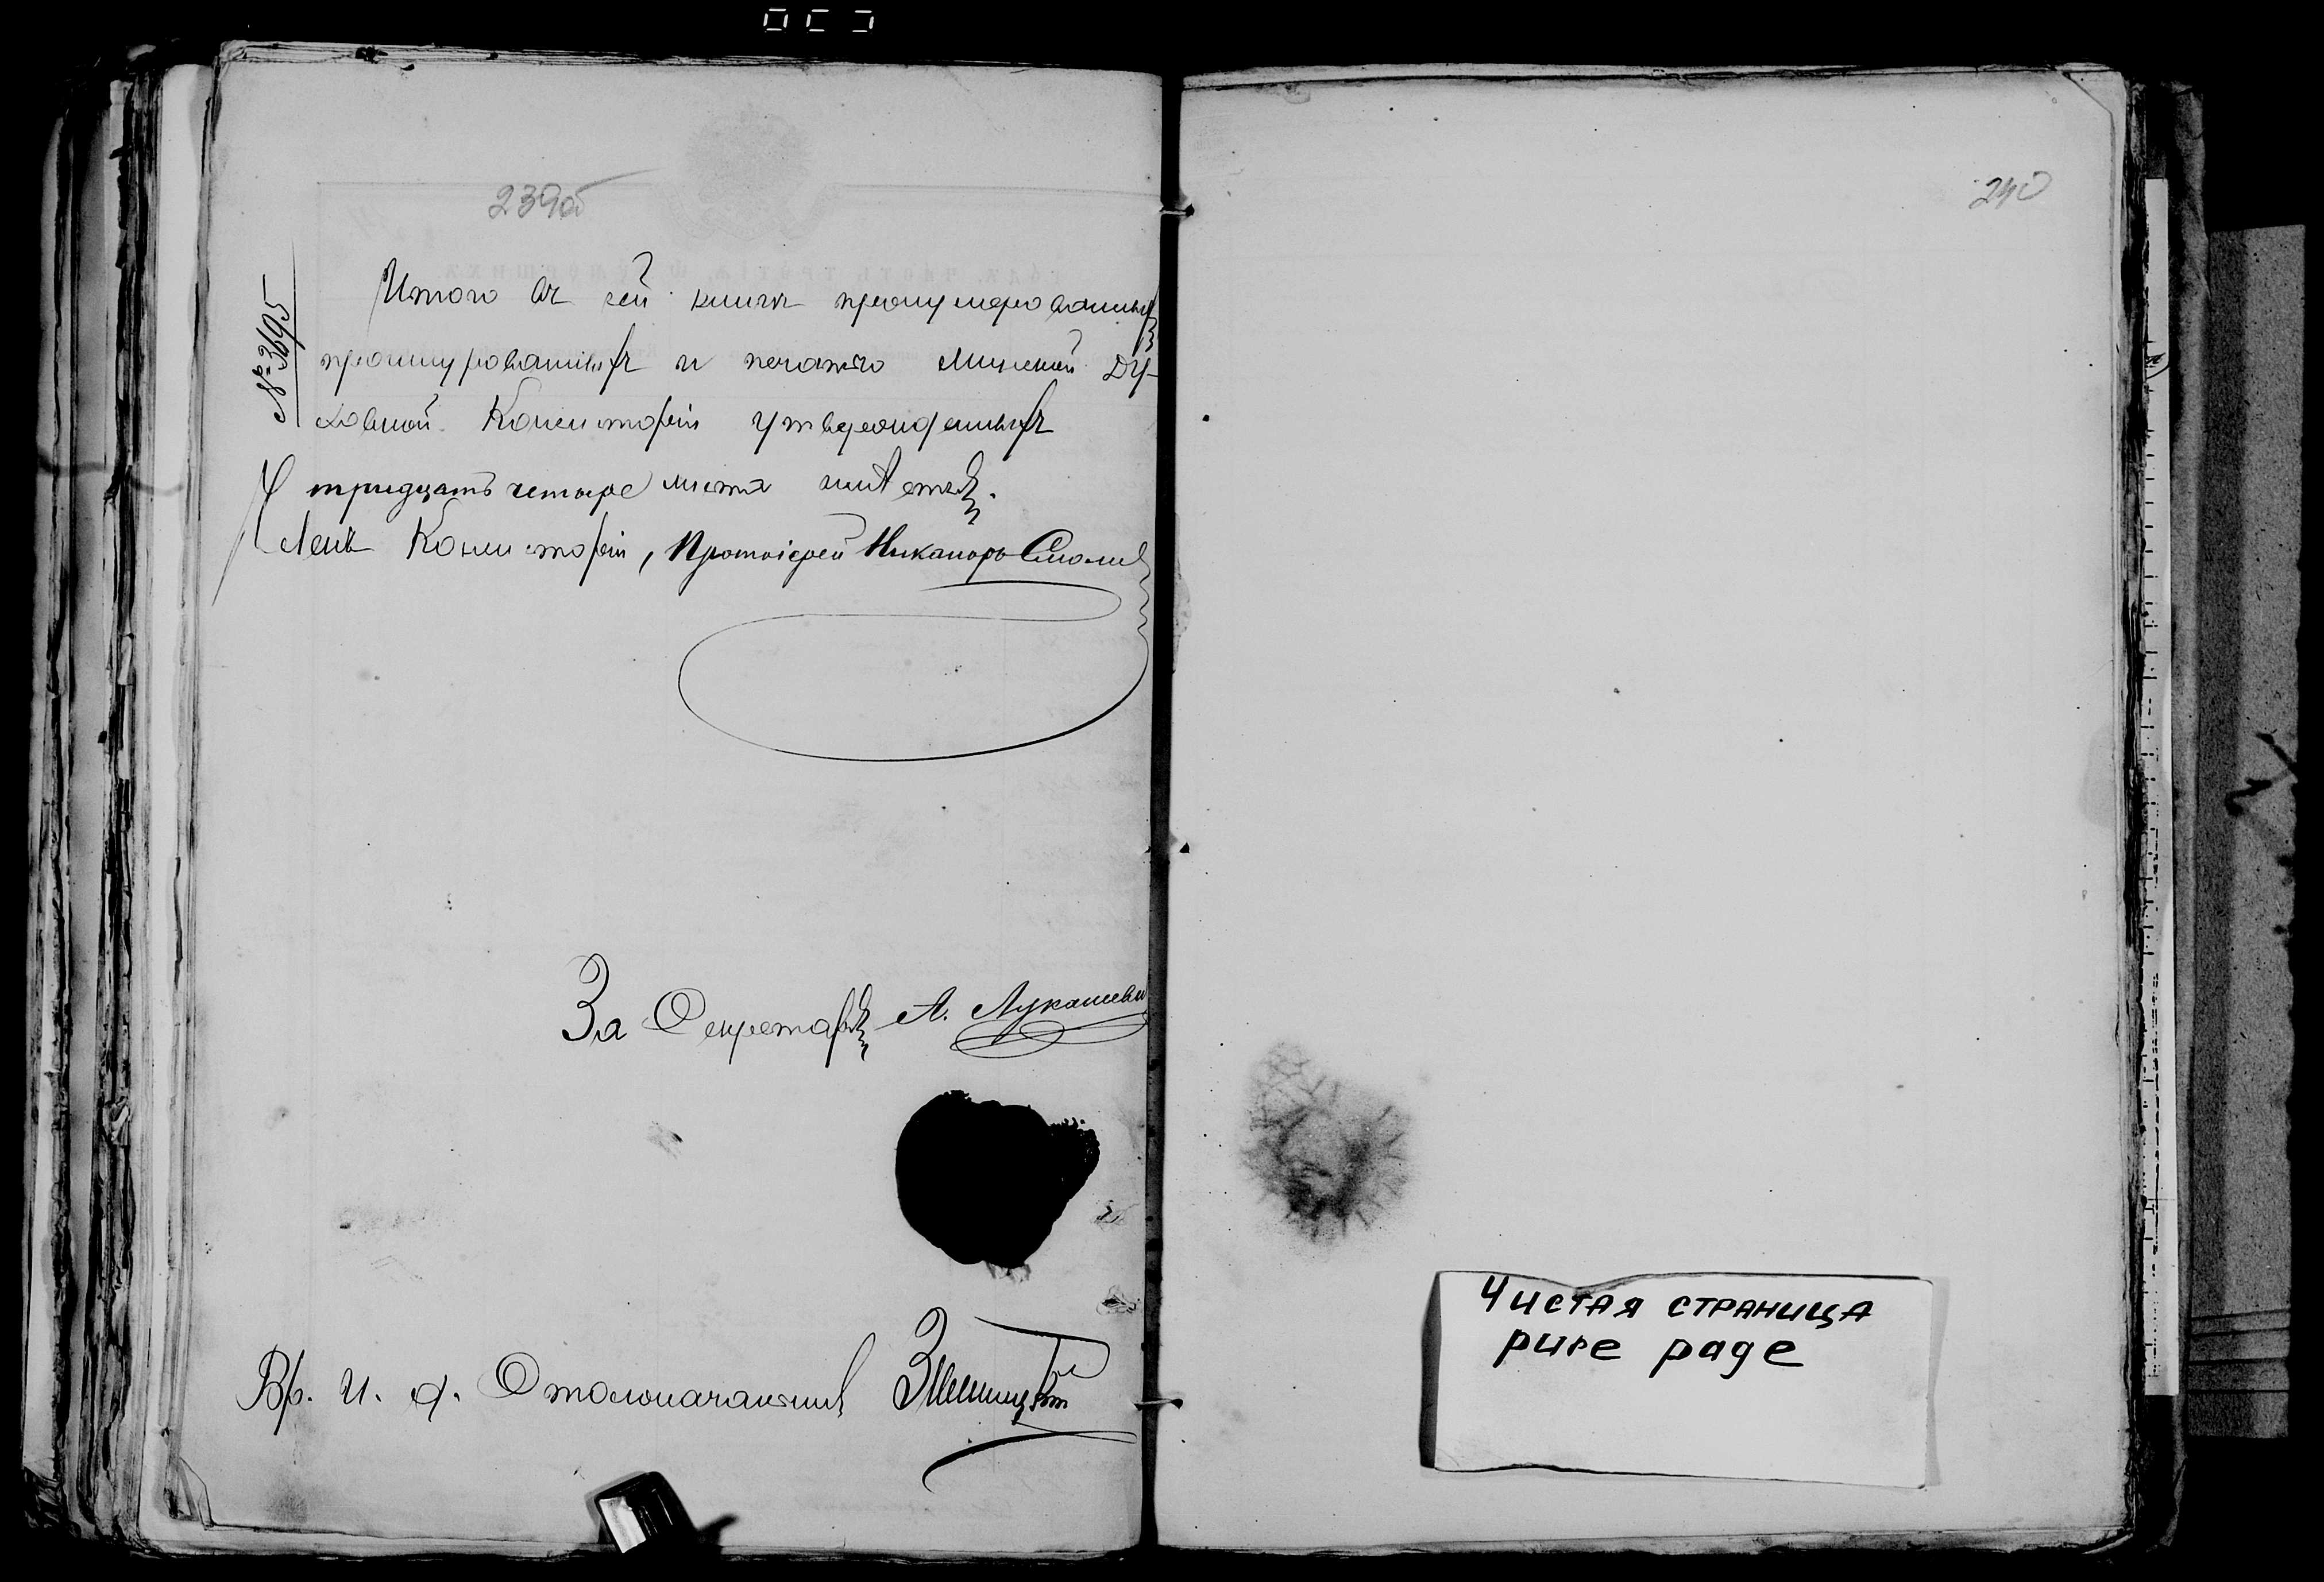 239об
№ 3695
Итого въ сей книгѣ пронумерованныхъ
прошнурованныхъ и печатью Минской Ду-
ховной Консисторіи утвержденныхъ
тридцать четыре листа имѣется.
Членъ Консисторіи, Протоіерей Никаноръ Смолич
За Секретаря А. Лукашеви
Вр. И. д. Столоначальника
240
Чистая страница
pure page